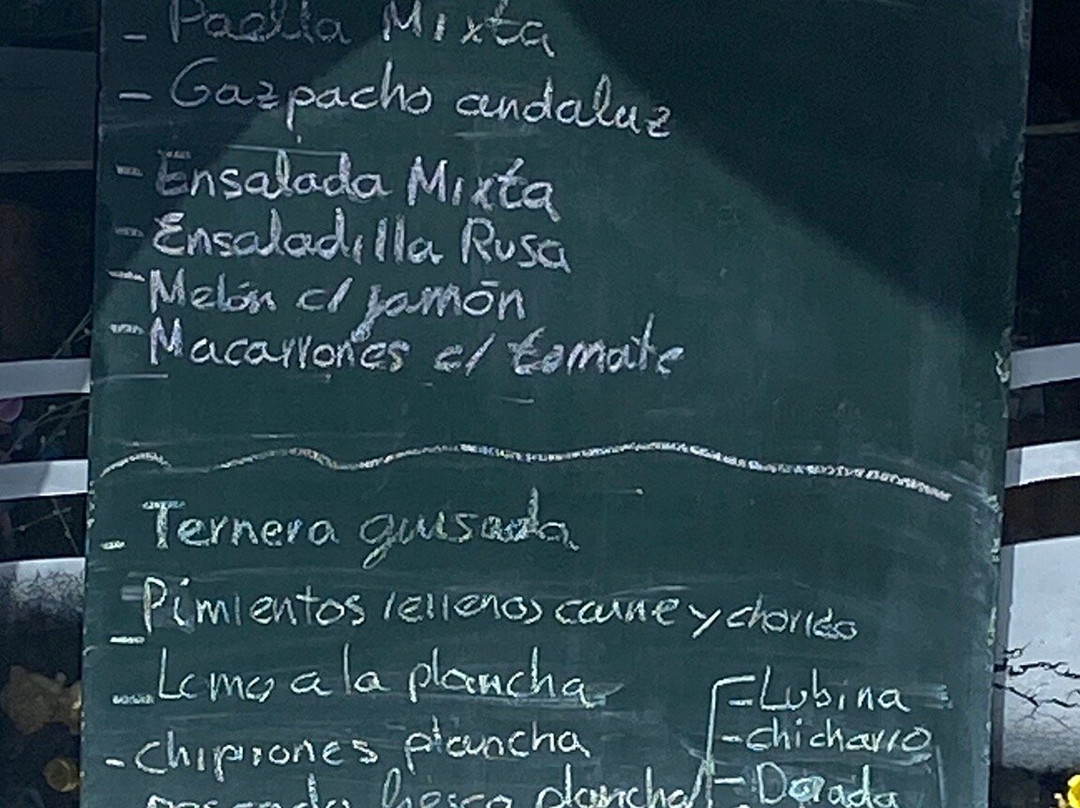 - Paella Mixta
- Gazpacho andaluz
- Ensalada Mixta
- Ensaladilla Rusa
- Melón c/ jamón
- Macarrones c/ tomate
- Ternera guisada
- Pimientos rellenos carne y chorizo
- Lomo a la plancha
- chipirones plancha
- Lubina
- chicharro
pescado fresco plancha - Dorada